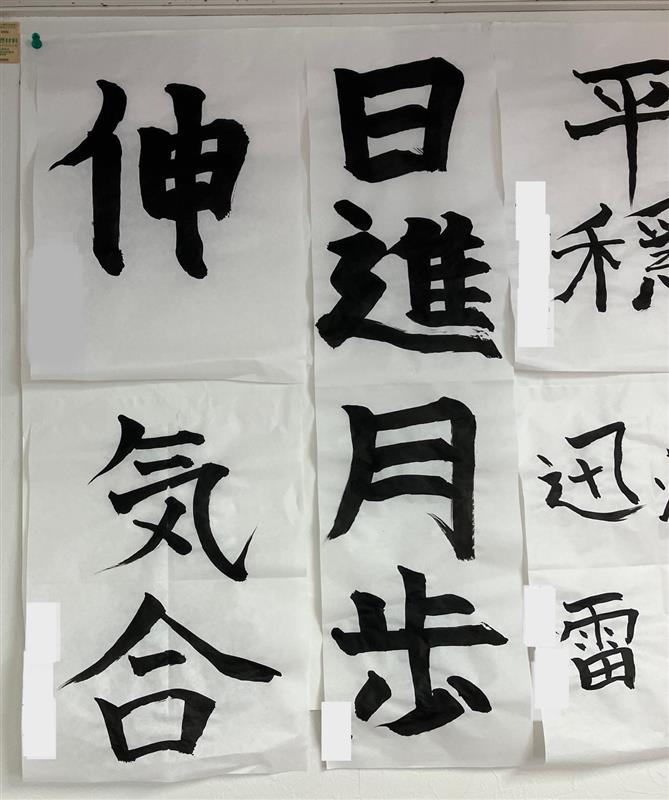 平穏
迅雷
日進月歩
伸
気合